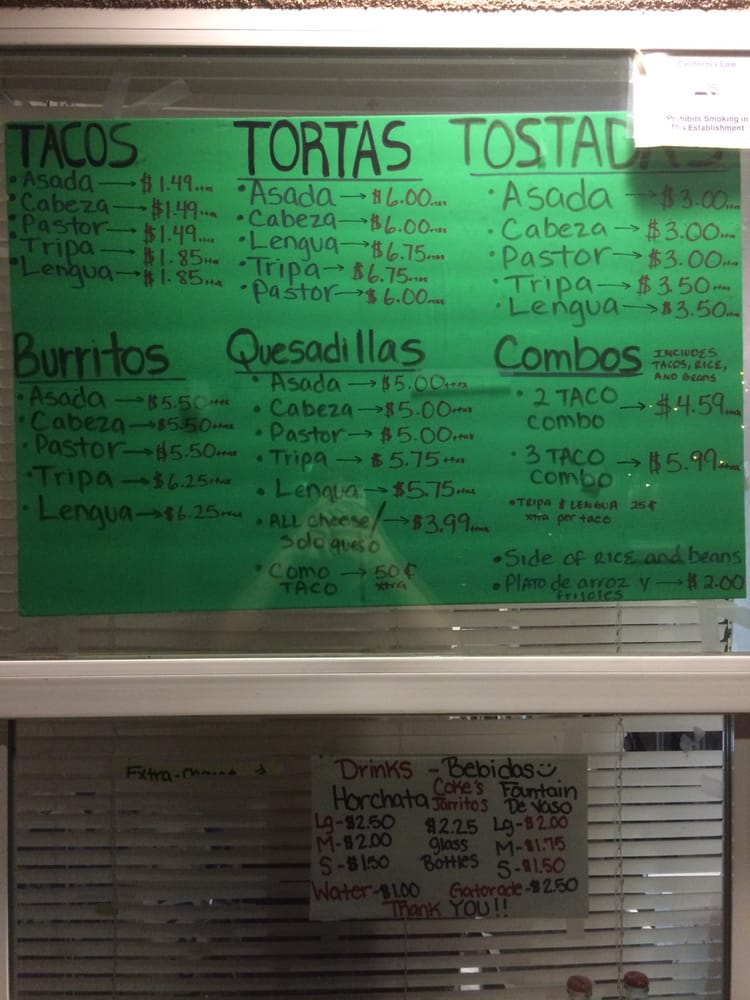 California Law
Prohibits Smoking in
This Establishment
TACOS
• Asada → $1.49
• Cabeza → $1.49
• Pastor → $1.49
• Tripa → $1.85
• Lengua → $1.85
TORTAS
• Asada → $6.00
• Cabeza → $6.00
• Lengua → $6.75
• Tripa → $6.75
• Pastor → $6.00
TOSTADAS
• Asada → $3.00
• Cabeza → $3.00
• Pastor → $3.00
• Tripa → $3.50
• Lengua → $3.50
Burritos
• Asada → $5.50
• Cabeza → $5.50
• Pastor → $5.50
• Tripa → $6.25
• Lengua → $6.25
Quesadillas
• Asada → $5.00
• Cabeza → $5.00
• Pastor → $5.00
• Tripa → $5.75
• Lengua → $5.75
• ALL cheese/ → $3.99
solo queso
• Como → 50¢
TACO xtra
Combos
INCLUDES
TACOS, RICE,
AND BEANS
• 2 TACO → $4.59
combo
• 3 TACO → $5.99
combo
• TRIPA & LENGUA 25¢
xtra per taco
• Side of RICE and beans
• PLATO de arroz y → $2.00
frijoles
Drinks - Bebidas
Horchata
Lg-$2.50
M-$2.00
S-$1.50
Coke's
Jarritos
$2.25
glass
Bottles
Fountain
De Vaso
Lg-$2.00
M-$1.75
S-$1.50
Water-$1.00 Gatorade-$2.50
Thank YOU!!